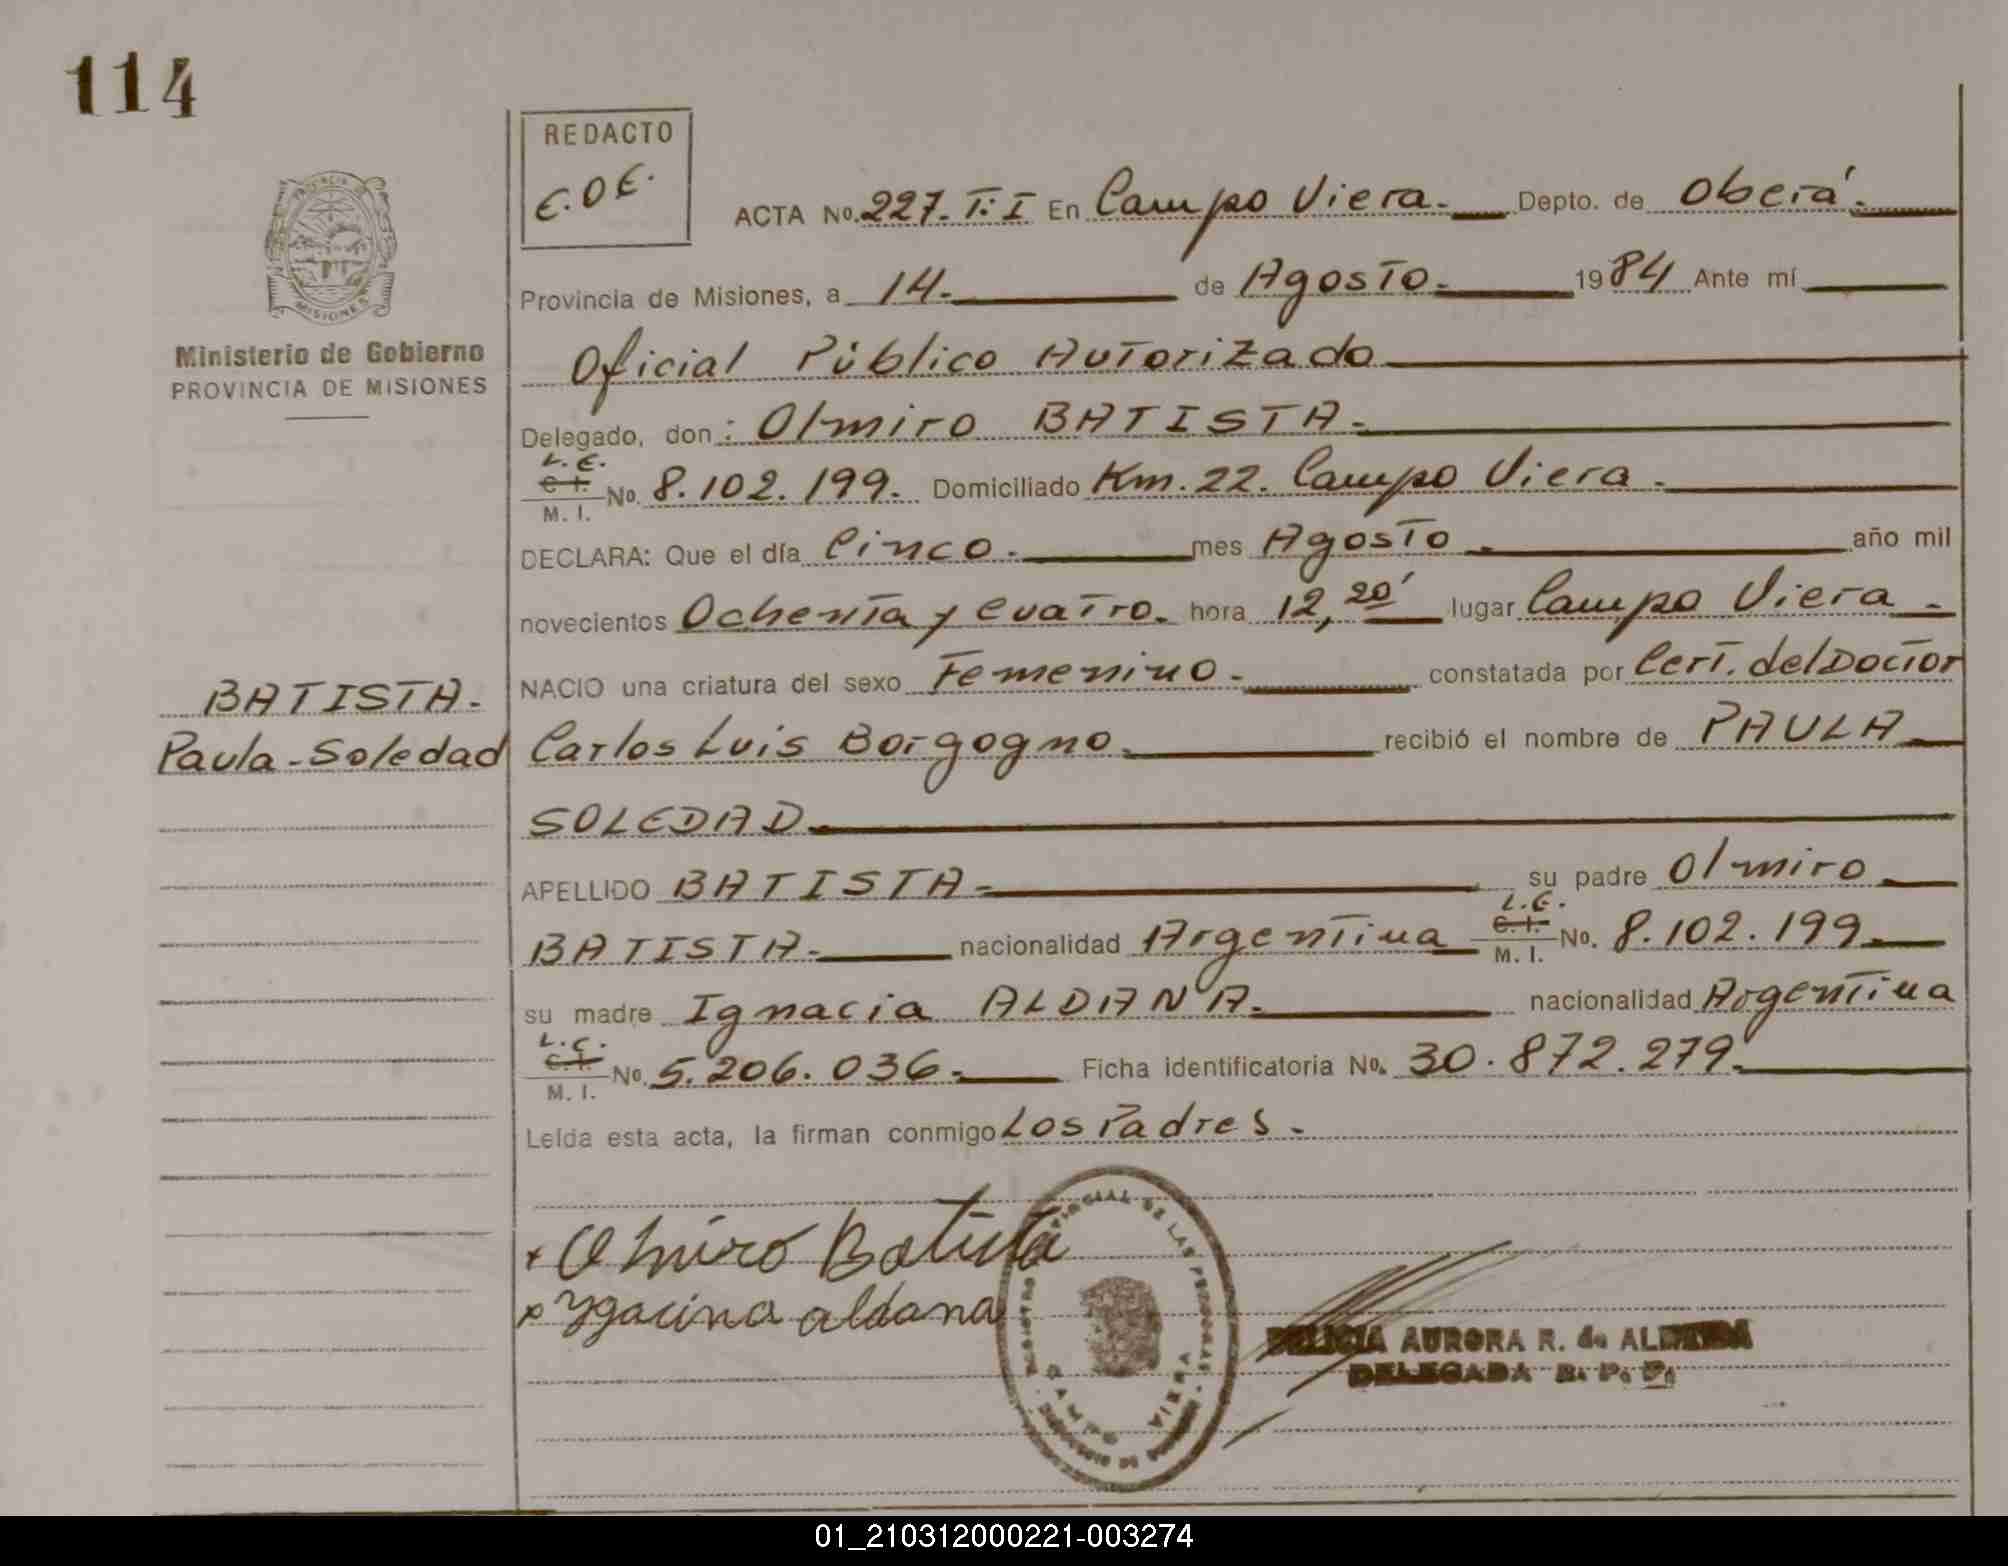 114
REDACTO
E.O.E.
ACTA No. 227. T: I En Campo Viera. Depto. de Oberá.
Provincia de Misiones, a 14. de Agosto. 1984 Ante mí
Oficial Público Autorizado
Delegado, don: Olmiro BATISTA.
L.E.
C. I.
M. I.
No. 8.102.199. Domiciliado Km. 22. Campo Viera.
DECLARA: Que el día Cinco. mes Agosto. año mil
novecientos Ochenta y Cuatro. hora 12,20' lugar Campo Viera.
NACIO una criatura del sexo Femenino. constatada por Cert. del Doctor
Carlos Luis Borgogno. recibió el nombre de PAULA
SOLEDAD.
APELLIDO BATISTA. su padre Olmiro
BATISTA. nacionalidad Argentina
L.E.
C. I.
M. I.
No. 8.102.199.
su madre Ignacia ALDANA. nacionalidad Argentina
L.C.
C. I.
M. I.
No. 5.206.036. Ficha identificatoria No. 30.872.279.
Leída esta acta, la firman conmigo Los Padres.
x Olmiro Batista
x Ygacina aldana
AURORA R. de
DELEGADA R. P. P.
PROVINCIA DE MISIONES
Ministerio de Gobierno
PROVINCIA DE MISIONES
BATISTA.
Paula-Soledad
01_210312000221-003274